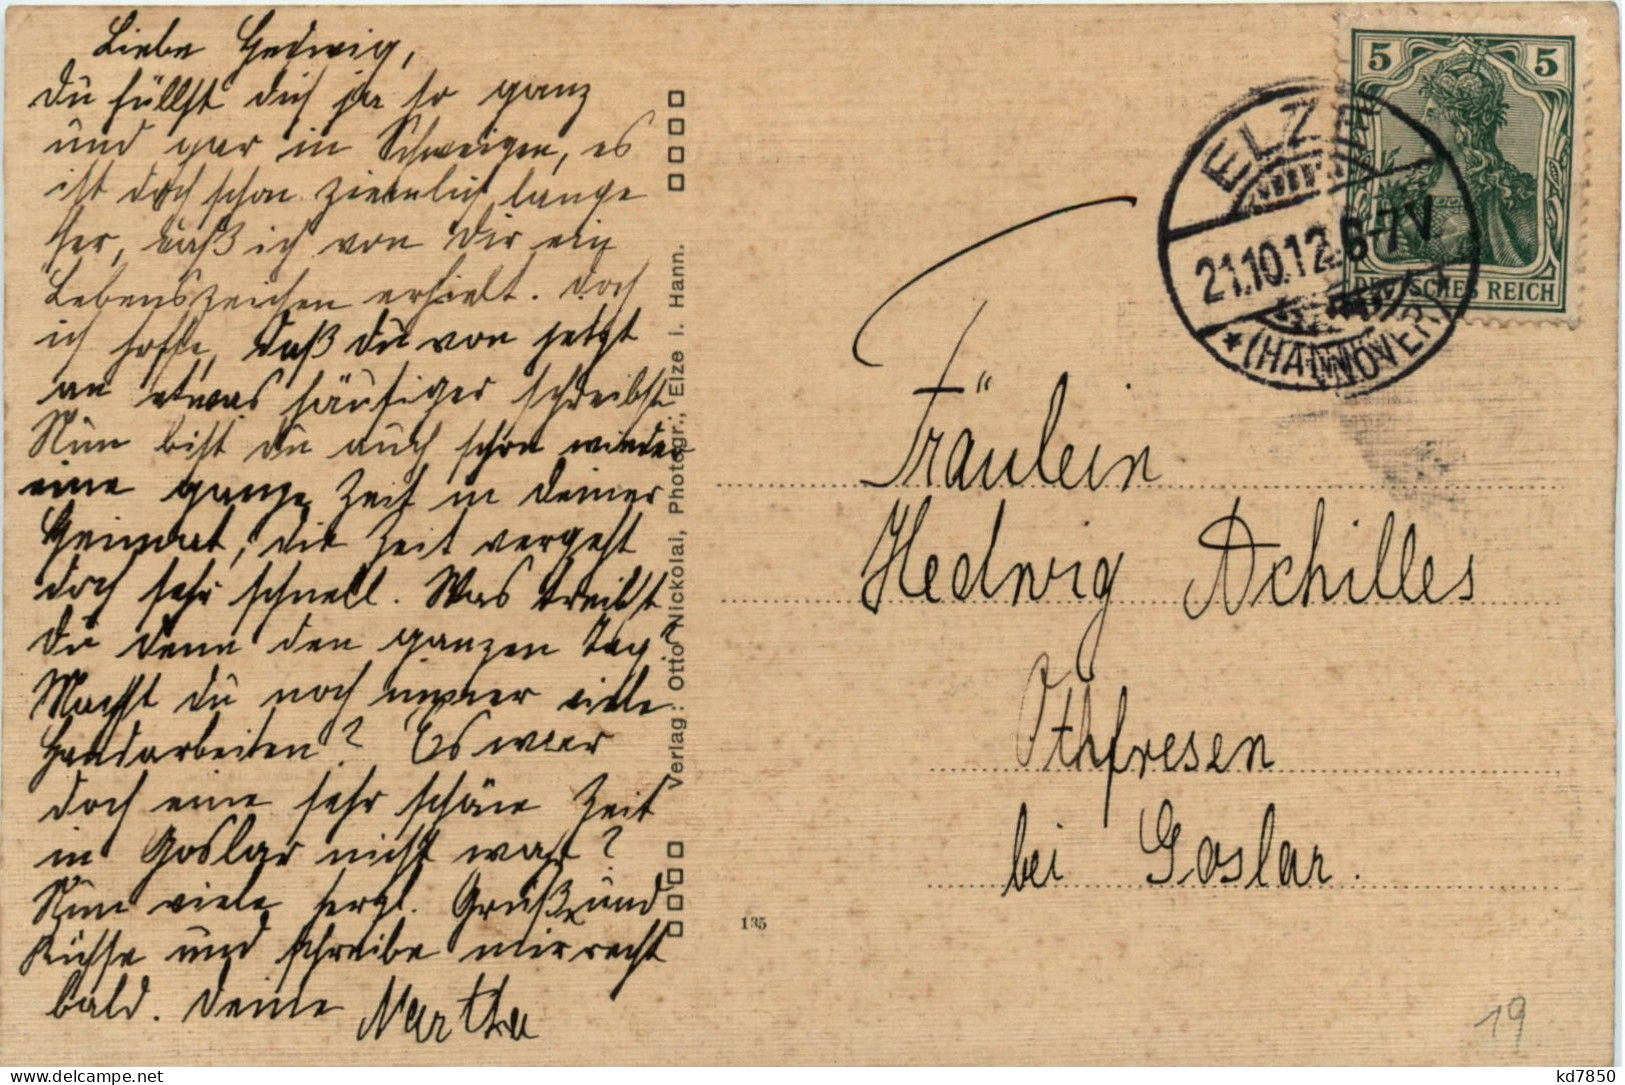 Liebe Hedwig,
du hüllst dich ja so ganz
und gar in Schweigen, es
ist doch schon ziemlich lange
her, daß ich von dir ein
Lebenszeichen erhielt. Doch
ich hoffe, daß du von jetzt
an etwas häufiger schreibst.
Nun bist du auch schon wieder
eine ganze Zeit in deiner
Heimat, die Zeit vergeht
doch sehr schnell. Was treibst
du denn den ganzen Tag?
Machst du noch immer viele
Handarbeiten? Es war
doch eine sehr schöne Zeit
in Goslar nicht wahr?
Nun viele herzl. Grüße und
Küsse und schreibe mir recht
bald. Deine Martha
Verlag: Otto Nickolai, Photogr., Elze i. Hann.
135
5 5
DEUTSCHES REICH
ELZE
21.10.12. 6-7V.
* (HANNOVER) *
Fräulein
Hedwig Achilles
Othfresen
bei Goslar.
19
kd7850